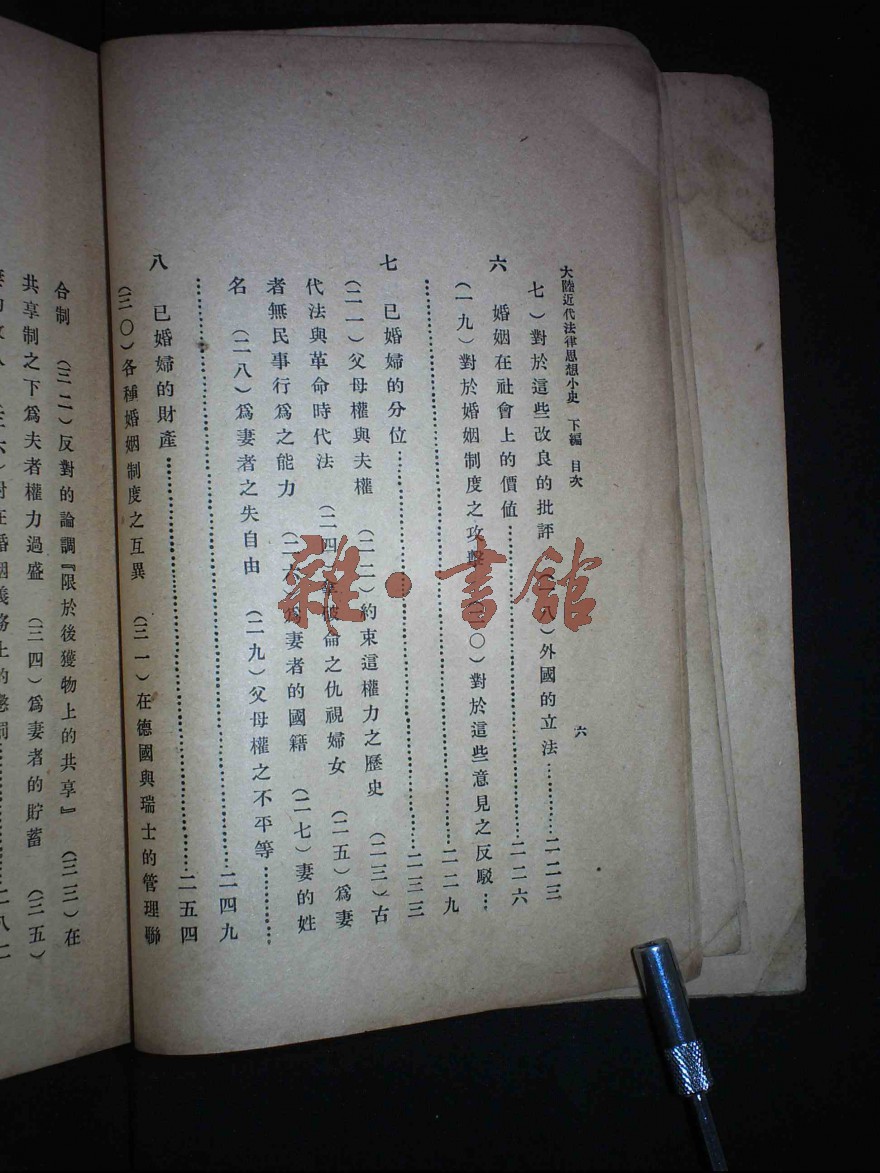 大陸近代法律思想小史 下編 目次
六
七)對於這些改良的批評 八)外國的立法…………二二三
六 婚姻在社會上的價値…………二二六
(一九)對於婚姻制度之攻擊 (二〇)對於這些意見之反駁…
…………二二九
七 已婚婦的分位…………二三三
(二一)父母權與夫權 (二二)約束這權力之歷史 (二三)古
代法與革命時代法 (二四)拿破侖之仇視婦女 (二五)爲妻
者無民事行爲之能力 (二六)爲妻者的國籍 (二七)妻的姓
名 (二八)爲妻者之失自由 (二九)父母權之不平等…………
…………二四九
八 已婚婦的財產…………二五四
(三〇)各種婚姻制度之互異 (三一)在德國與瑞士的管理聯
合制 (三二)反對的論調『限於後獲物上的共享』 (三三)在
共享制之下爲夫者權力過盛 (三四)爲妻者的貯蓄 (三五)
對在婚姻義務上的懲罰…………二八二
雜·書館